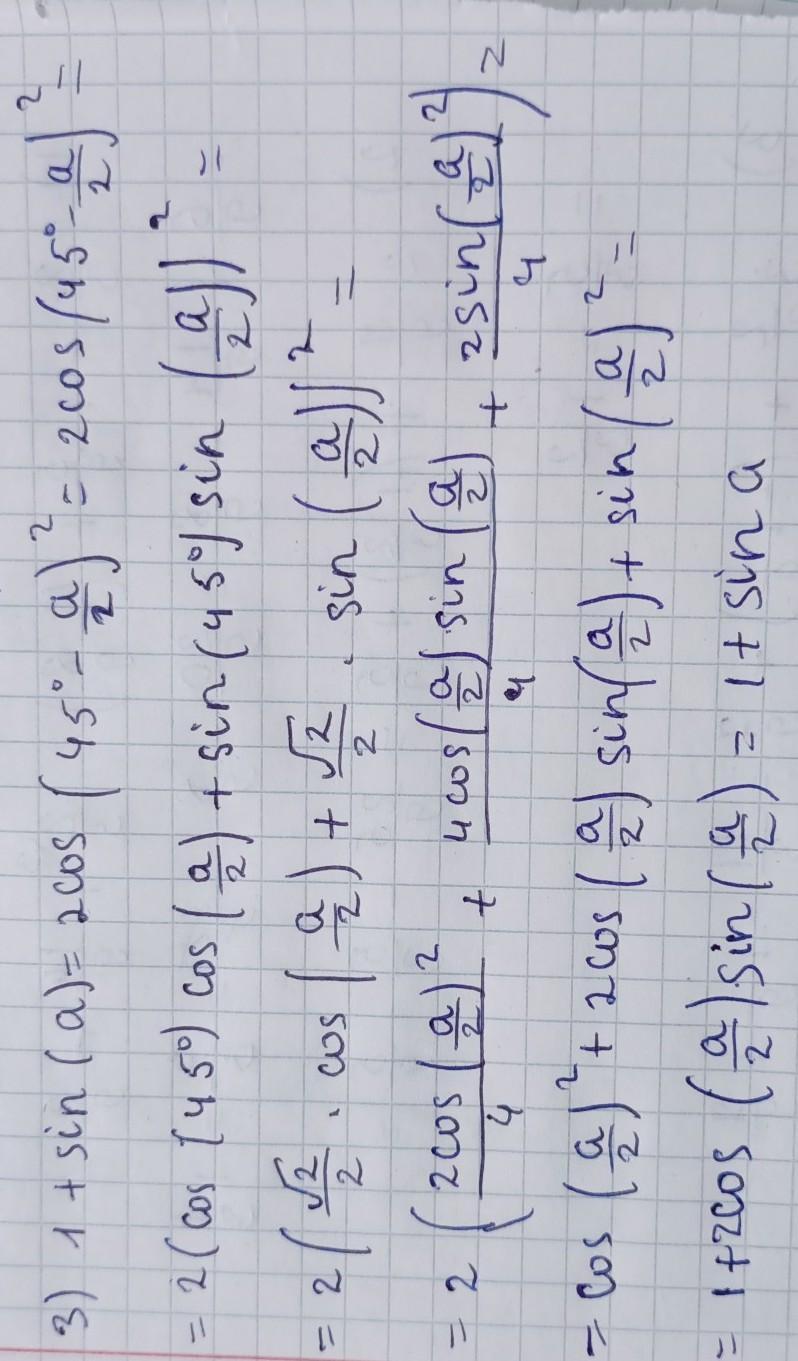 3) 1 + sin (a) = 2cos (45° - a/2)² = 2cos(45° - a/2)² =
= 2(cos (45°) cos (a/2) + sin(45°) sin (a/2))² =
= 2(√2/2 · cos (a/2) + √2/2 · sin (a/2))² =
= 2 (2cos(a/2)²/4 + 4cos(a/2)sin(a/2)/4 + 2sin(a/2)²/4)²
= cos (a/2)² + 2cos (a/2) sin(a/2) + sin(a/2)² =
= 1 + 2cos (a/2)sin(a/2) = 1 + sin a